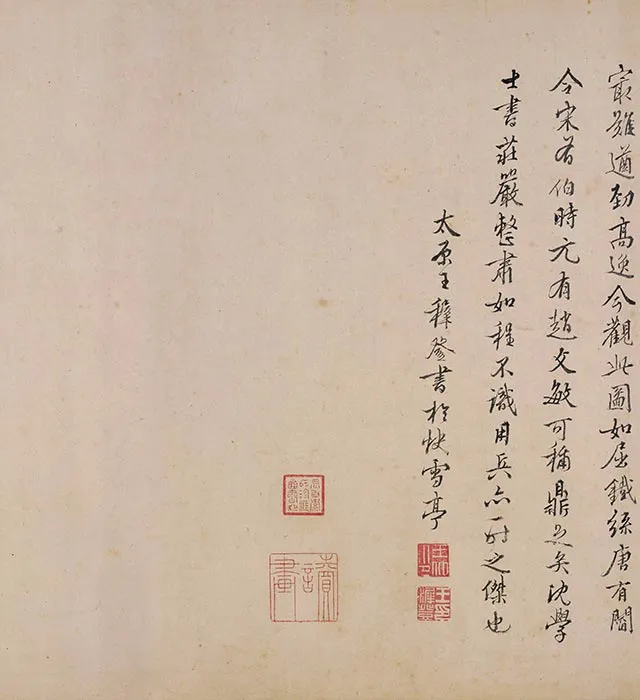 㝡難遒勁高逸今觀此圖如屈鐵絲唐有閻
令宋有伯時元有趙文敏可稱鼎足矣沈學
士書莊嚴整肅如程不識用兵亦一時之傑也
太原王穉登書於快雪亭